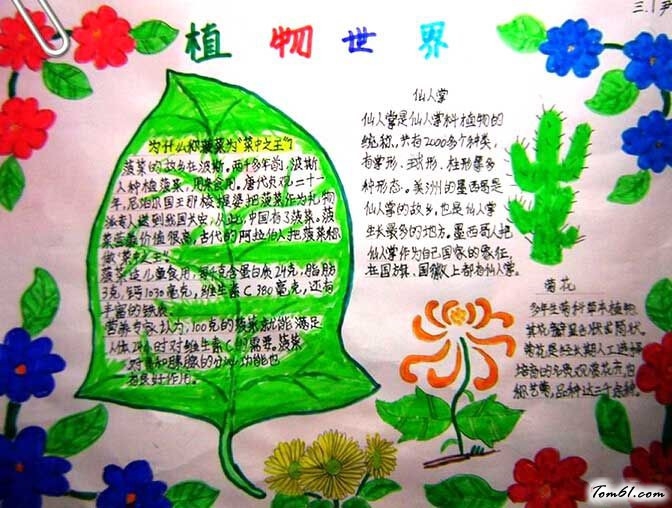 植物世界
三.1
为什么称菠菜为"菜中之王"?
菠菜的故乡在波斯。两千多年前,波斯
人种植菠菜,用来食用。唐代贞观二十一
年,尼泊尔国王那棱提婆把菠菜作为礼物
派专人送到我国长安,从此,中国有了菠菜。菠
菜营养价值很高,古代的阿拉伯人把菠菜称
做"菜中之王"
菠菜适儿童食用,每千克含蛋白质24克,脂肪
3克,钙1030毫克,维生素C 380毫克,还有
丰富的铁质。
营养专家认为,100克的菠菜就能满足
人体24小时对维生素C的需要。菠菜
对胃和胰腺的分泌功能也
有良好作用。
仙人掌
仙人掌是仙人掌科植物的
统称,共有2000多个种类,
有掌形、球形、柱形等多
种形态。美洲的墨西哥是
仙人掌的故乡,也是仙人掌
生长最多的地方。墨西哥人把
仙人掌作为自己国家的象征,
在国旗、国徽上都有仙人掌。
菊花
多年生菊科草本植物,
其花瓣呈舌状或筒状。
菊花是经长期人工选择
培育的名贵观赏花卉,也
称艺菊,品种达三千余种。
Tom61.com